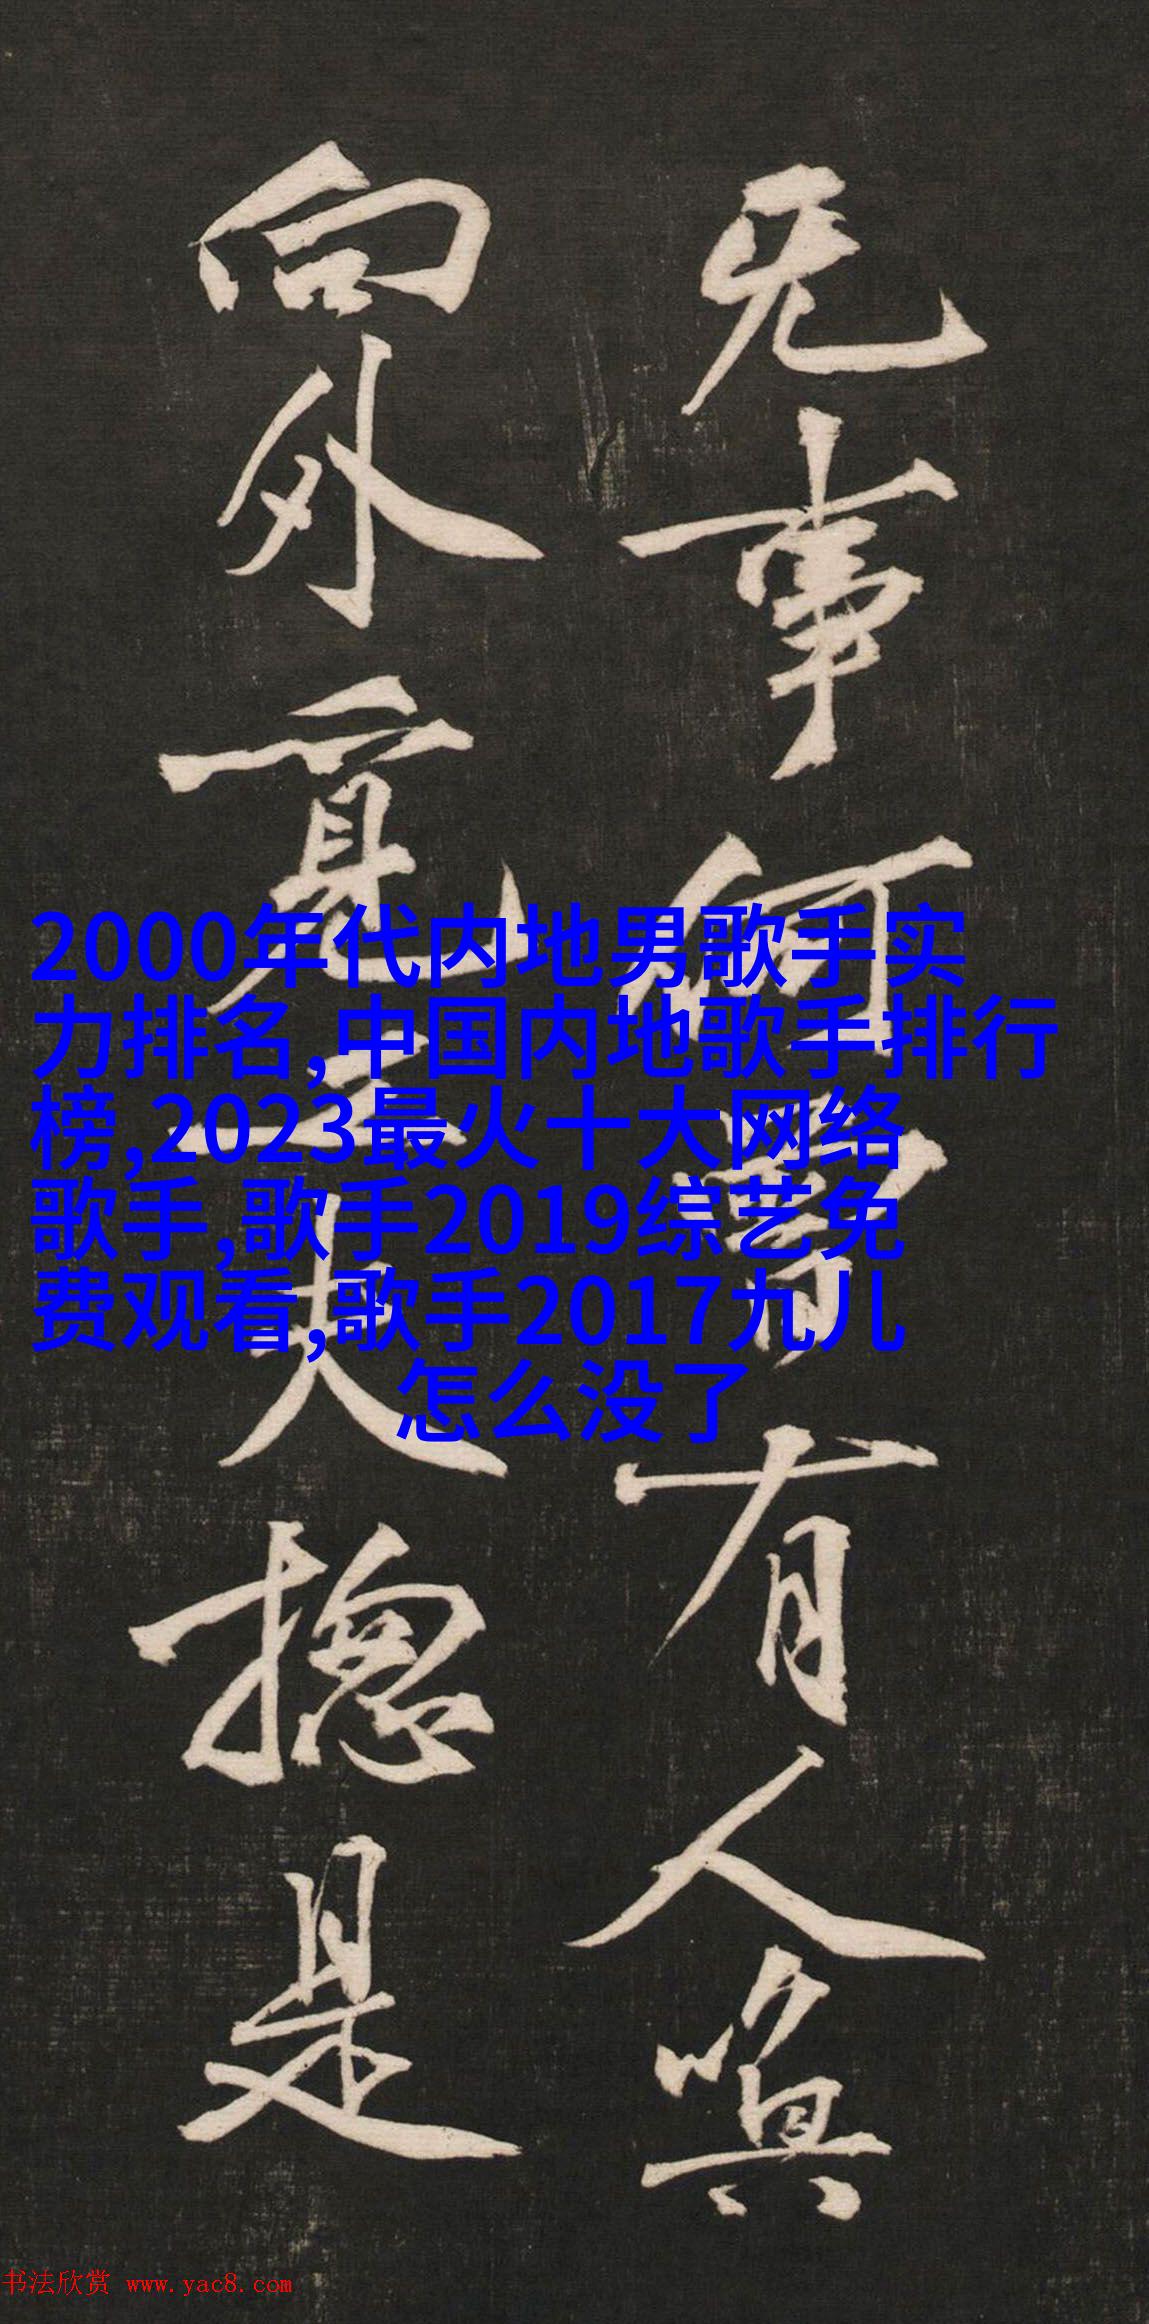 无事何曾有人喚
向外覓工夫揔是
2000年代内地男歌手实
力排名,中国内地歌手排行
榜,2023最火十大网络
歌手,歌手2019综艺免
费观看,歌手2017九儿
怎么没了
书法欣赏 www.yac8.com